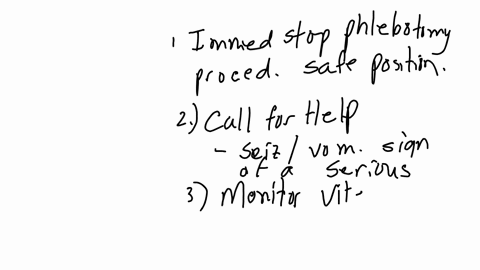 1 Immed stop phlebotomy
proced. safe position.
2.) Call for Help
- seiz / vom. sign
of a serious
3) Monitor vit